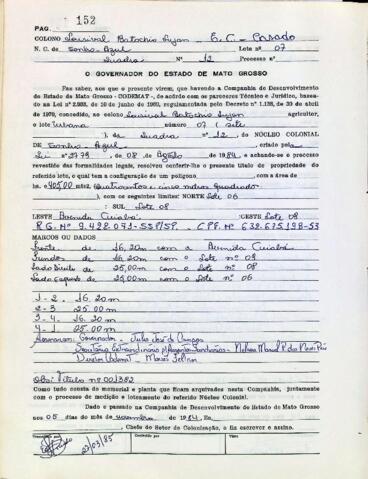 PAG. 152
COLONO Lourival Batochio Lujan E. C. - Casado
N. C. de Sonho-Azul Lote nº 07
Quadra nº 12 Processo nº
O GOVERNADOR DO ESTADO DE MATO GROSSO
Faz saber, aos que o presente virem, que havendo a Companhia de Desenvolvimento
do Estado de Mato Grosso - CODEMAT-, de acordo com os pareceres Técnico e Jurídico, basea-
do na Lei nº 2.903, de 19 de junho de 1969, regulamentada pelo Decreto nº 1.138, de 30 de abril
de 1970, concedido ao colono Lourival Batochio Lujan agricultor,
o lote Urbano número 07 (Sete
), da Quadra nº 12, do NÚCLEO COLONIAL
DE Sonho-Azul, criado pela
Lei nº 2779 de 08, de Agosto 1984, e achando-se o processo
revestido das formalidades legais, resolveu conferir-lhe o presente título de propriedade do
referido lote, o qual tem a configuração de um polígono com a área de
hs. 405,00 mts2. (Quatrocentos e cinco metros quadrados
), com os seguintes limites: NORTE Lote 06
: SUL Lote 08
LESTE Avenida Cuiabá OESTE Lote 08
R.G. Nº 9.422.073-SSP/SP. C.P.F. Nº 632.675.198-53
MARCOS OU DADOS
Frente de 16,20m com a Avenida Cuiabá
Fundos de 16,20m com o Lote nº 08
Lado Direito de 25,00m com o Lote nº 08
Lado Esquerdo de 25,00m com o Lote nº 06
1 - 2 16.20m
2 - 3 25.00m
3 - 4 16.20m
4 - 1 25.00m
Assinaram: Governador - Julio José de Campos
Secretário Extraordinário p/ Assuntos Fundiários - Nelson
Diretor
Obs: Título nº 001382
Como tudo consta do memorial e planta que ficam arquivados nesta Companhia, juntamente
com o processo de medição e loteamento do referido Núcleo Colonial.
Dado e passado na Companhia de Desenvolvimento do Estado de Mato Grosso
aos 05 dias do mês de novembro de 1984, Eu
, Chefe do Setor de Colonização, a fiz escrever e assino.
Transcrito por Conferido por Visto
27/03/85